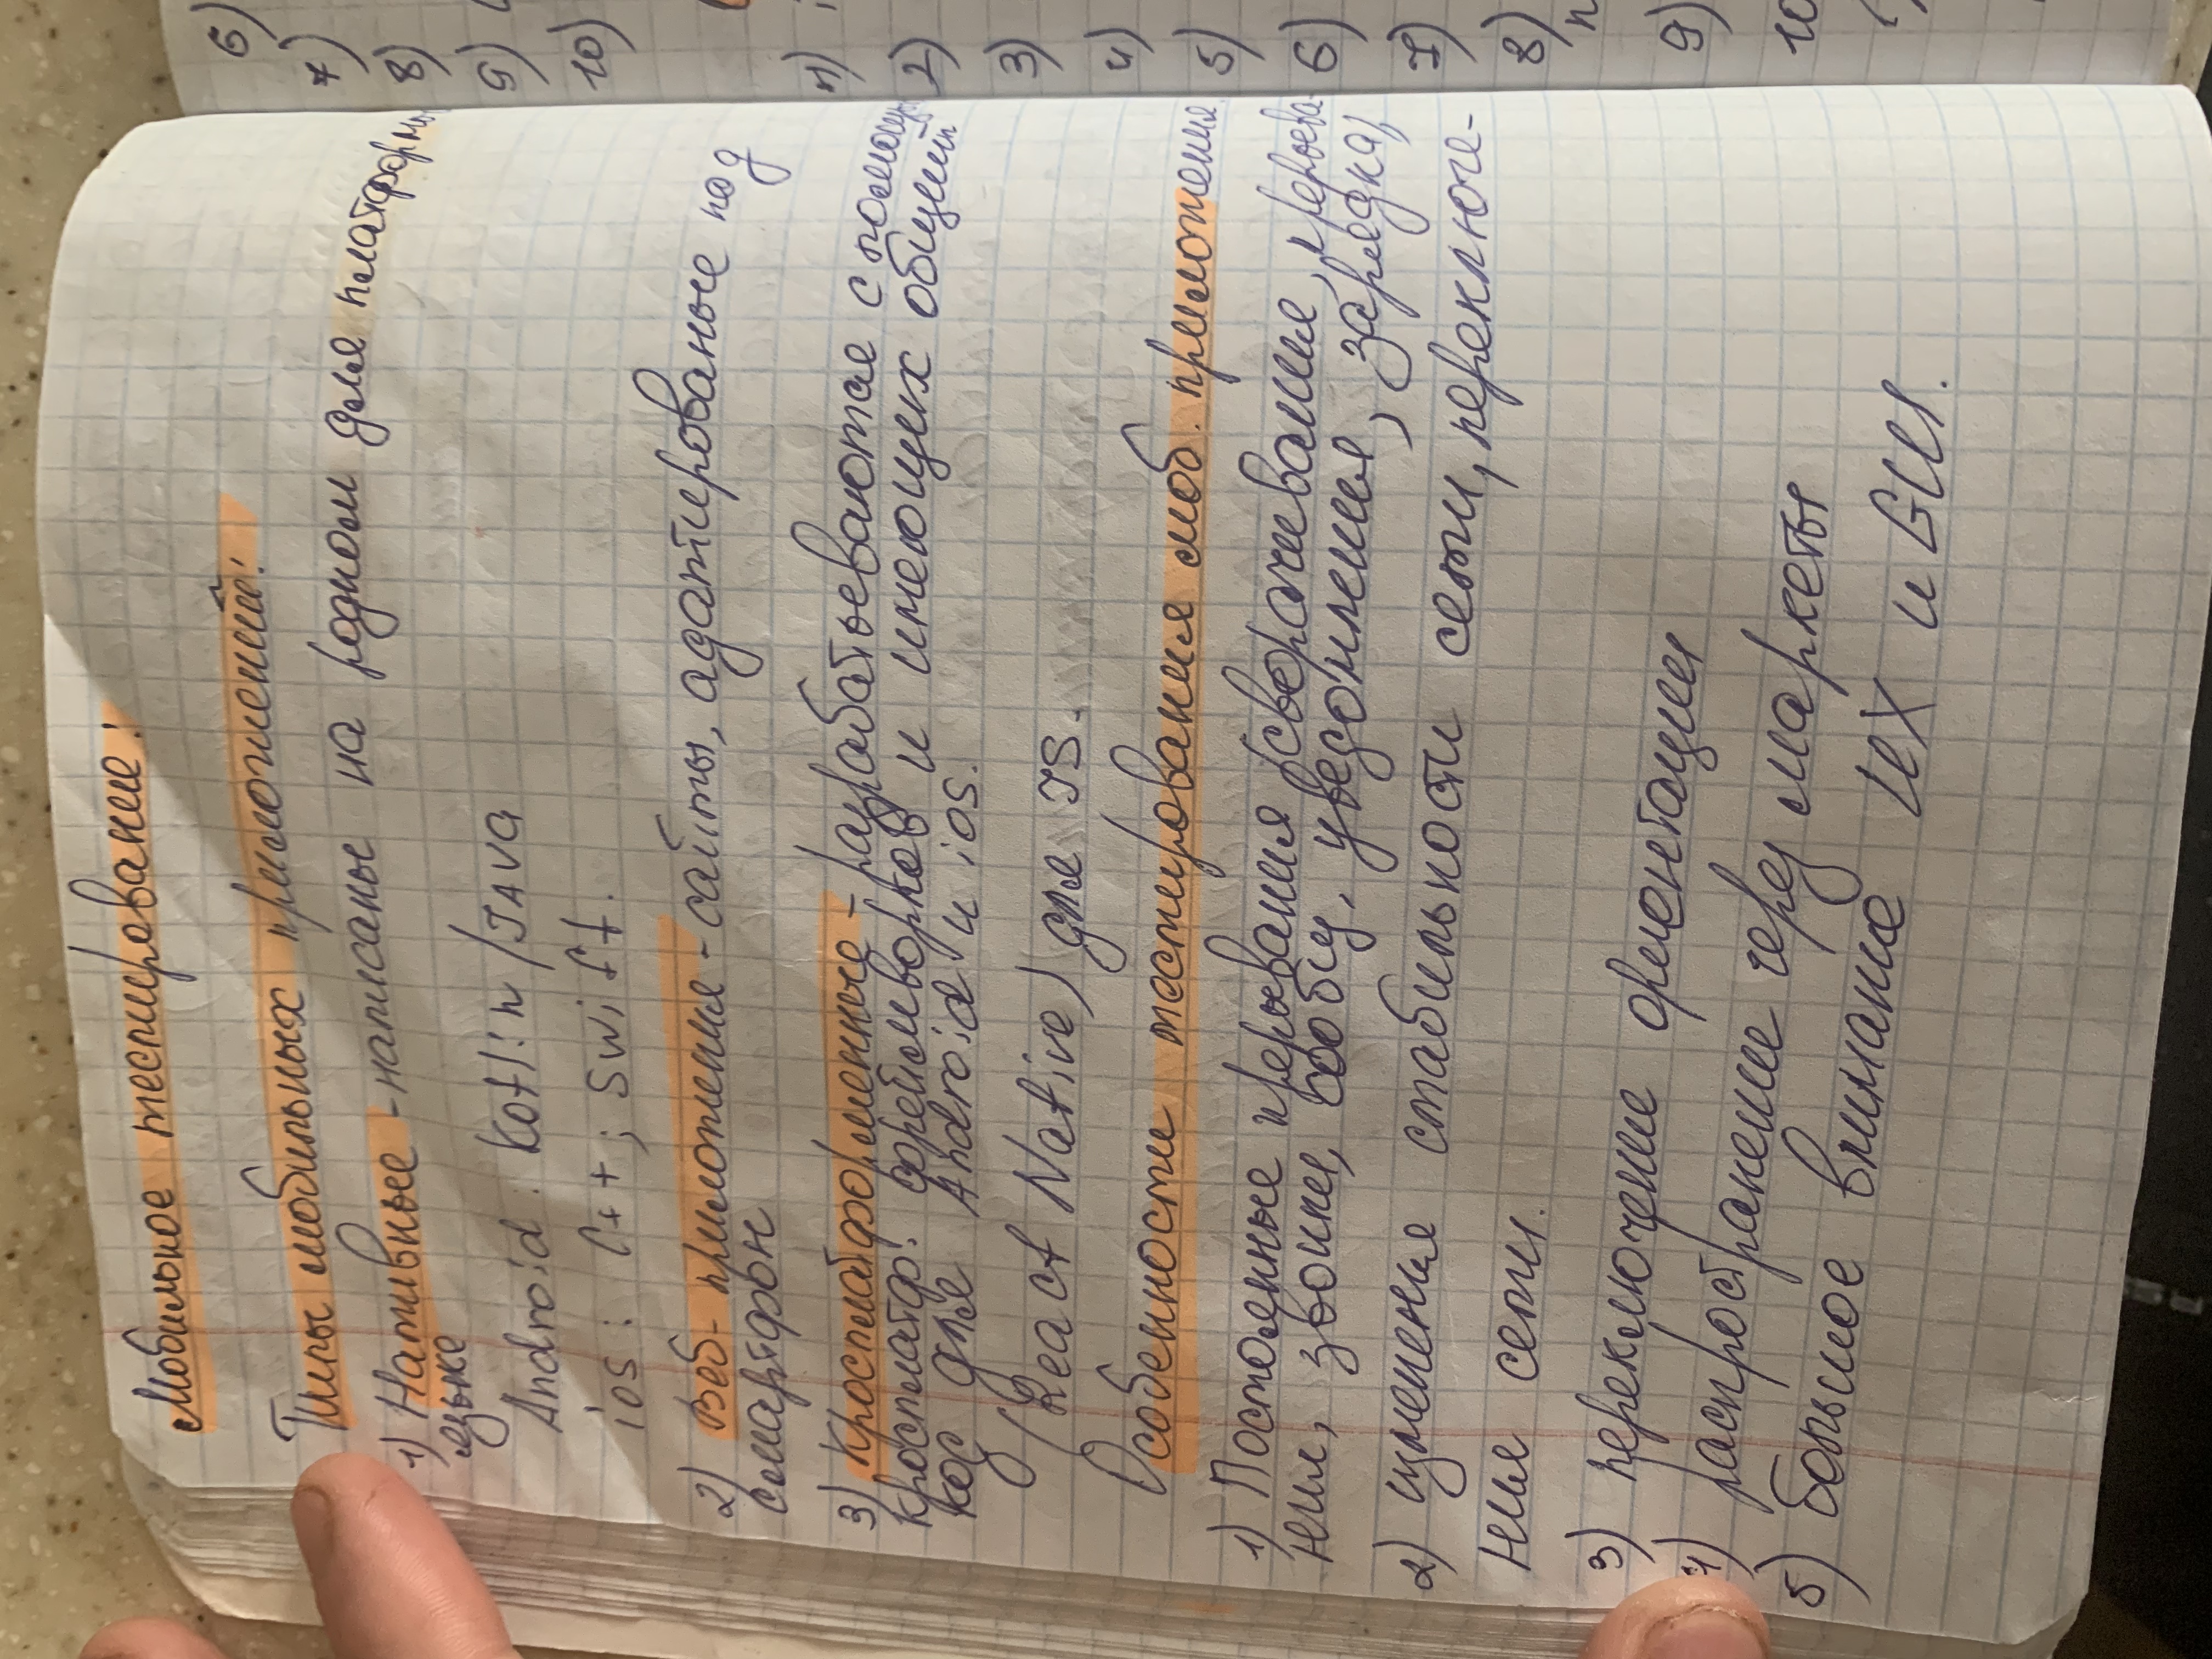 Мобильное тестирование:
Типы мобильных приложений:
1) Нативные - написаны на родном для платформы
языке
Android: Kotlin / JAVA
ios: C++; swift.
2) Веб-приложения - сайты, адаптированые под
смартфон
3) Кросплатформенные - разрабатываются с помощью
кросплатф. фреймворков и имеющих общий
код для Android и ios.
(React Native) для JS.
Особенности тестирования моб. приложения
1) Постоянные прерывания (сворачивания, прерыва-
ния, звонки, сообщ, уведомления, зарядка),
2) изменения стабильности сети, переключе-
ния сети.
3) переключение ориентации
4) распространение через маркеты
5) большое внимание UX и GUI.
6)
7)
8)
9)
10)
1)
2)
3)
4)
5)
6)
7)
8)
п
9)
10